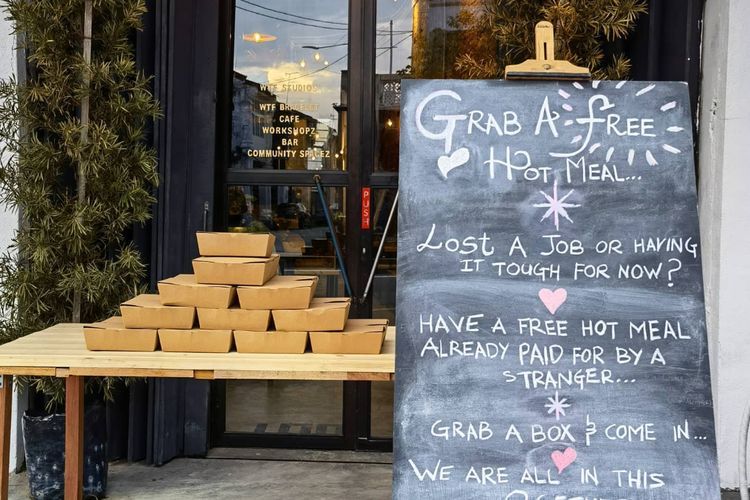 WTF STUDIO
WTF BRACELET
CAFE
WORKSHOPZ
BAR
COMMUNITY SPACEZ
PUSH
GRAB A FREE
HOT MEAL...
LOST A JOB OR HAVING
IT TOUGH FOR NOW?
HAVE A FREE HOT MEAL
ALREADY PAID FOR BY A
STRANGER...
GRAB A BOX & COME IN...
WE ARE ALL IN THIS